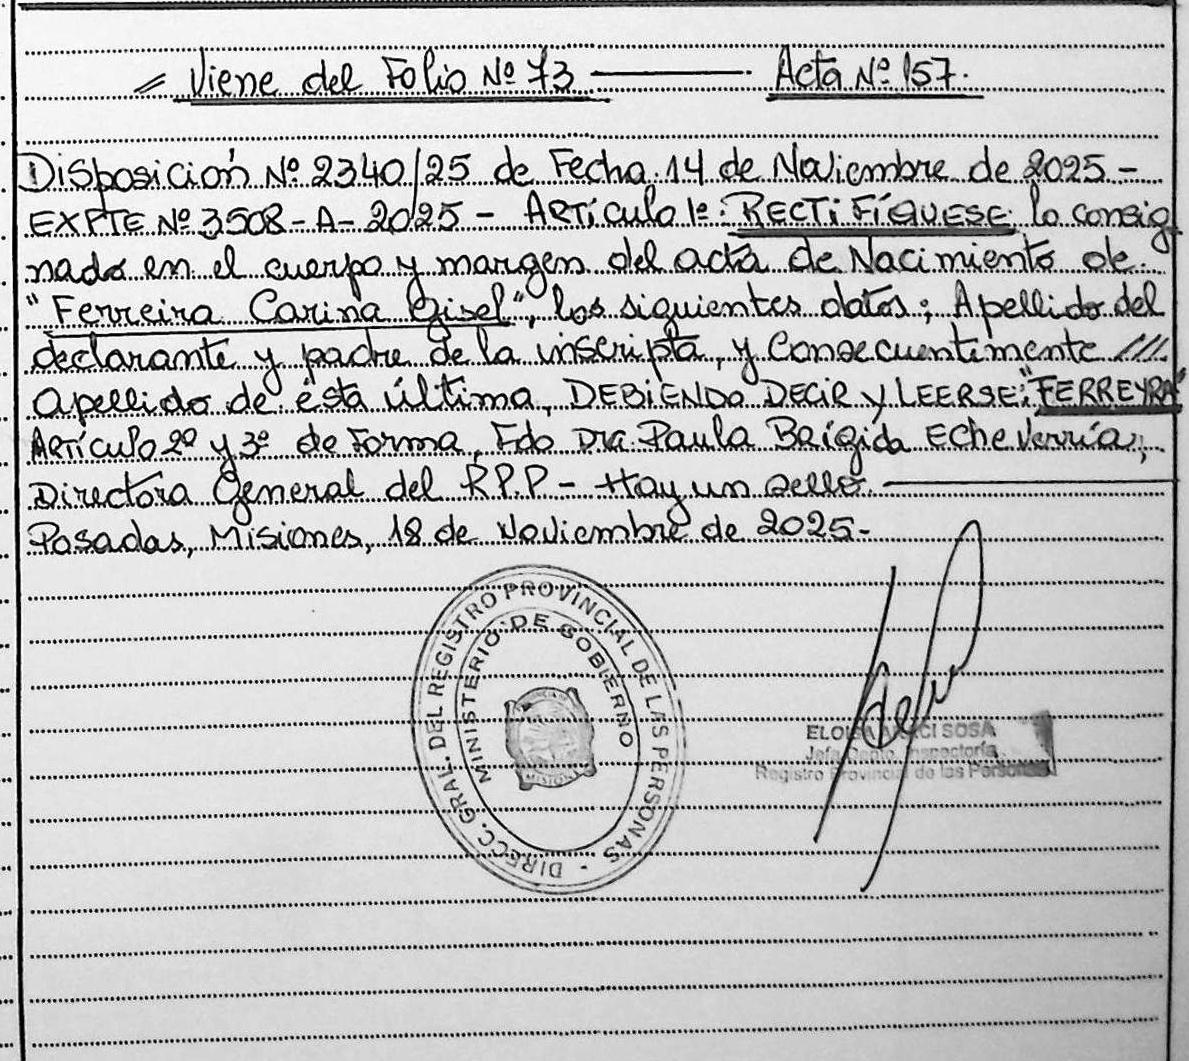 Viene del Folio Nº 73 ——— Acta Nº 157.
Disposición Nº 2340/25 de Fecha 14 de Noviembre de 2025 -
EXPTE Nº 3508-A-2025 - ARTículo 1º: RECTIFÍQUESE lo consig
nado en el cuerpo y margen del acta de Nacimiento de
"Ferreira Carina Gisel", los siguientes datos; Apellido del
declarante y padre de la inscripta, y Consecuentemente ////
apellido de ésta última, DEBIENDO DECIR Y LEERSE: "FERREYRA"
Artículo 2º y 3º de Forma, Fdo Dra. Paula Brígida Echeverría;
Directora General del R.P.P - Hay un sello. ———
Posadas, Misiones, 18 de Noviembre de 2025.-
DIRECC. GRAL. DEL REGISTRO PROVINCIAL DE LAS PERSONAS -
MINISTERIO DE GOBIERNO
MISIONES
SOSA
Jefa Depto. Inspectoría
Registro Provincial de las Personas